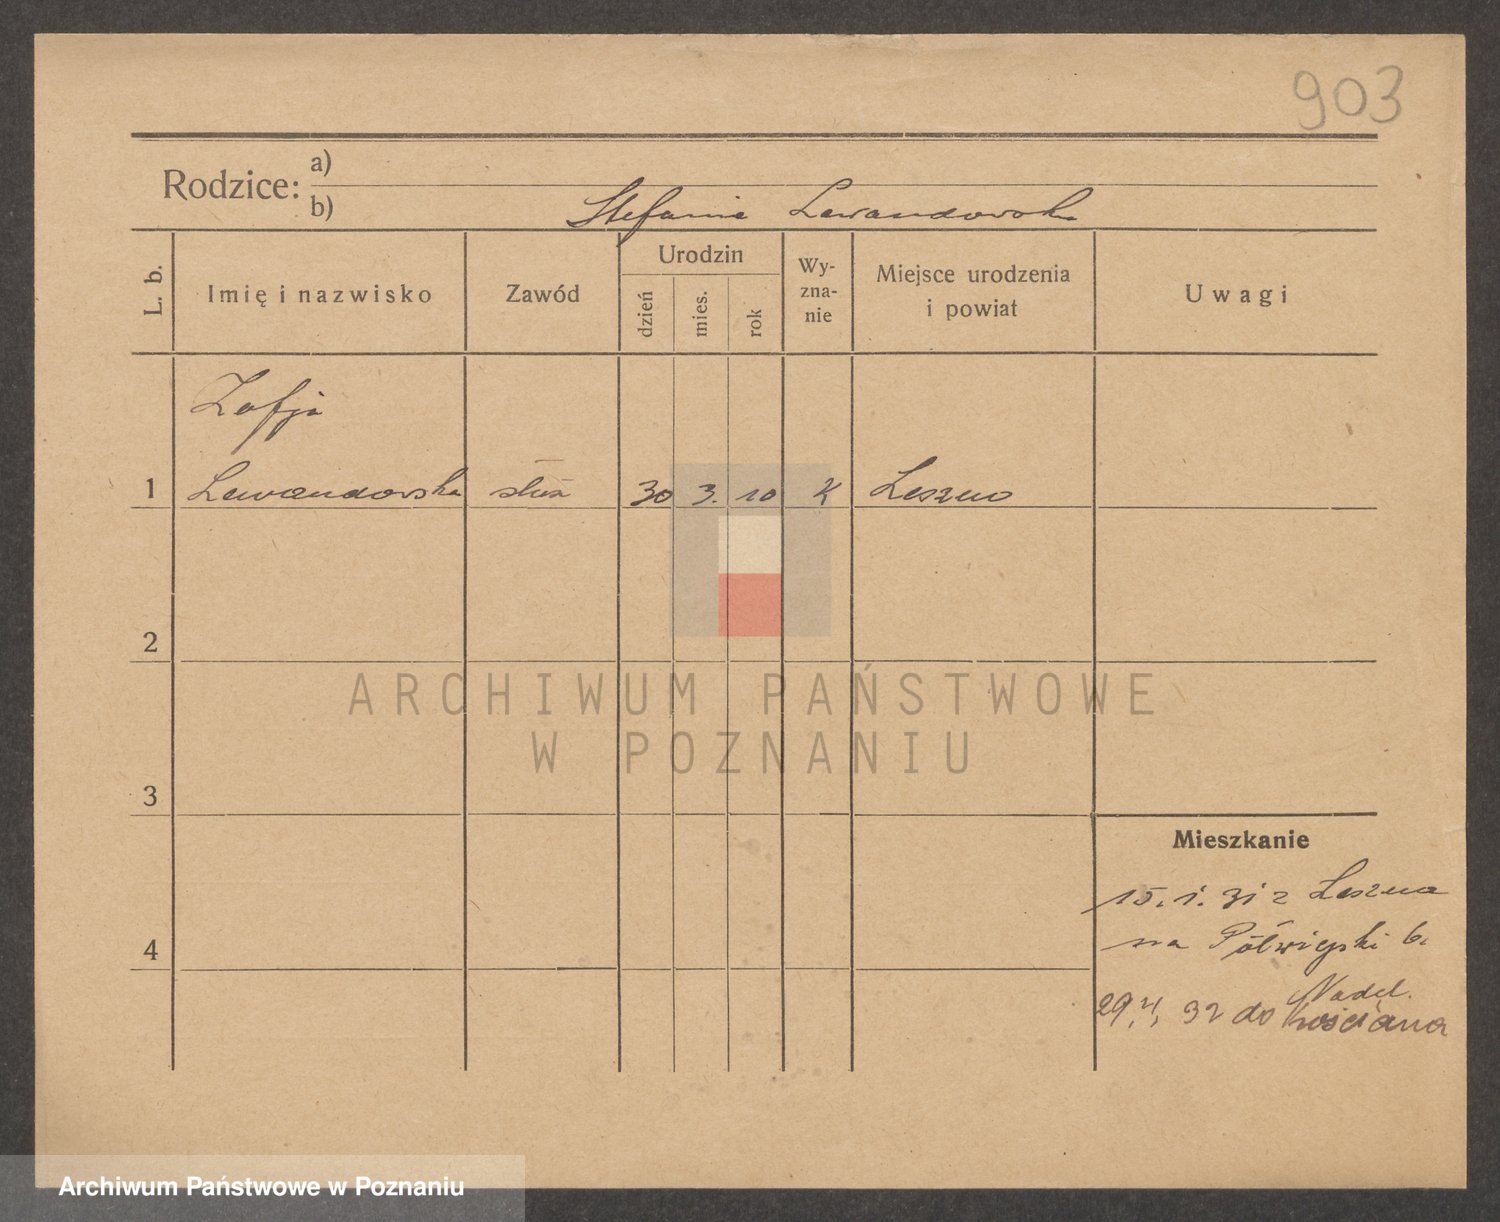 903
Rodzice: a)
b) Stefania Lewandowska
L. b.
Imię i nazwisko
Zawód
Urodzin
dzień
mies.
rok
Wy-
zna-
nie
Miejsce urodzenia
i powiat
Uwagi
Zofja
1 Lewandowska służ 30 3. 10 K Leszno
2
ARCHIWUM PAŃSTWOWE
W POZNANIU
3
Mieszkanie
15. 1. 31 z Leszna
na Półwiejski 6.
4
Nadl.
29. 4. 32 do Kościana
Archiwum Państwowe w Poznaniu